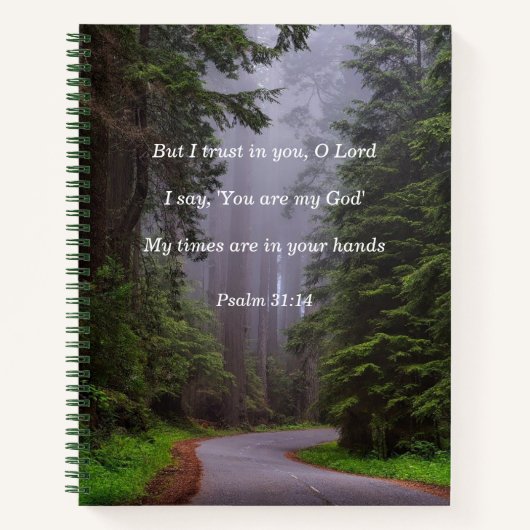 But I trust in you, O Lord
I say, 'You are my God'
My times are in your hands
Psalm 31:14